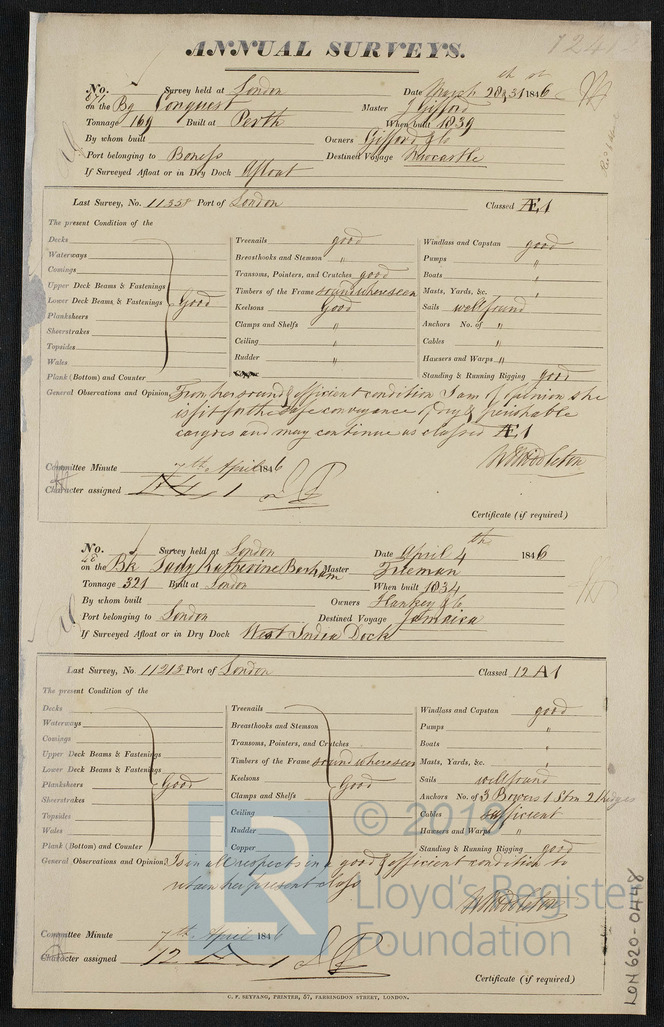 1241
ANNUAL SURVEYS.
No. Survey held at London Date March 28th 31st 1846
on the Bg Conquest Master J Gifford
Tonnage 169 Built at Perth When built 1839
By whom built Owners Gifford & Co
Port belonging to Boness Destined Voyage Newcastle
If Surveyed Afloat or in Dry Dock Afloat
Last Survey, No. 11558 Port of London Classed Æ1
The present Condition of the
Decks
Waterways
Comings
Upper Deck Beams & Fastenings
Lower Deck Beams & Fastenings Good
Planksheers
Sheerstrakes
Topsides
Wales
Plank (Bottom) and Counter
Treenails good
Breasthooks and Stemson "
Transoms, Pointers, and Crutches good
Timbers of the Frame sound where seen
Keelsons Good
Clamps and Shelfs "
Ceiling "
Rudder "
Windlass and Capstan good
Pumps "
Boats "
Masts, Yards, &c. "
Sails well found
Anchors No. of "
Cables "
Hawsers and Warps "
Standing & Running Rigging good
General Observations and Opinion From her sound & efficient condition I am of opinion she
is fit for the safe conveyance of dry & perishable
cargoes and may continue as classed Æ1
W Middleton
Committee Minute 7th April 1846
Character assigned Æ 1
Certificate (if required)
No. Survey held at London Date April 4th 1846
on the Bk Lady Katherine Barham Master Freeman
Tonnage 321 Built at London When built 1834
By whom built Owners Hankey & Co
Port belonging to London Destined Voyage Jamaica
If Surveyed Afloat or in Dry Dock West India Dock
Last Survey, No. 11213 Port of London Classed 12 A1
The present Condition of the
Decks
Waterways
Comings
Upper Deck Beams & Fastenings
Lower Deck Beams & Fastenings
Planksheers Good
Sheerstrakes
Topsides
Wales
Plank (Bottom) and Counter
Treenails
Breasthooks and Stemson
Transoms, Pointers, and Crutches
Timbers of the Frame sound where seen
Keelsons Good
Clamps and Shelfs
Ceiling
Rudder
Copper
Windlass and Capstan good
Pumps "
Boats "
Masts, Yards, &c. "
Sails well found
Anchors No. of 3 Bowers 1 Strm 2 Kedges
Cables sufficient
Hawsers and Warps "
Standing & Running Rigging good
General Observations and Opinion Is in all respects in a good & efficient condition to
retain her present class
W Middleton
Committee Minute 7th April 1846
Character assigned 12 A 1
Certificate (if required)
C. F. SEYFANG, PRINTER, 57, FARRINGDON STREET, LONDON.
LON 620-0448
LR © 2019
Lloyd's Register
Foundation